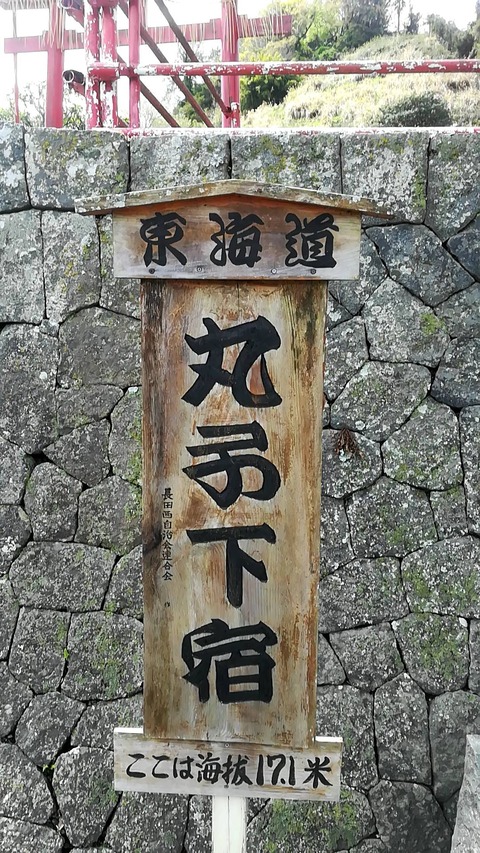 東海道
丸子下宿
長田西自治会連合会 作
ここは海抜17.1米